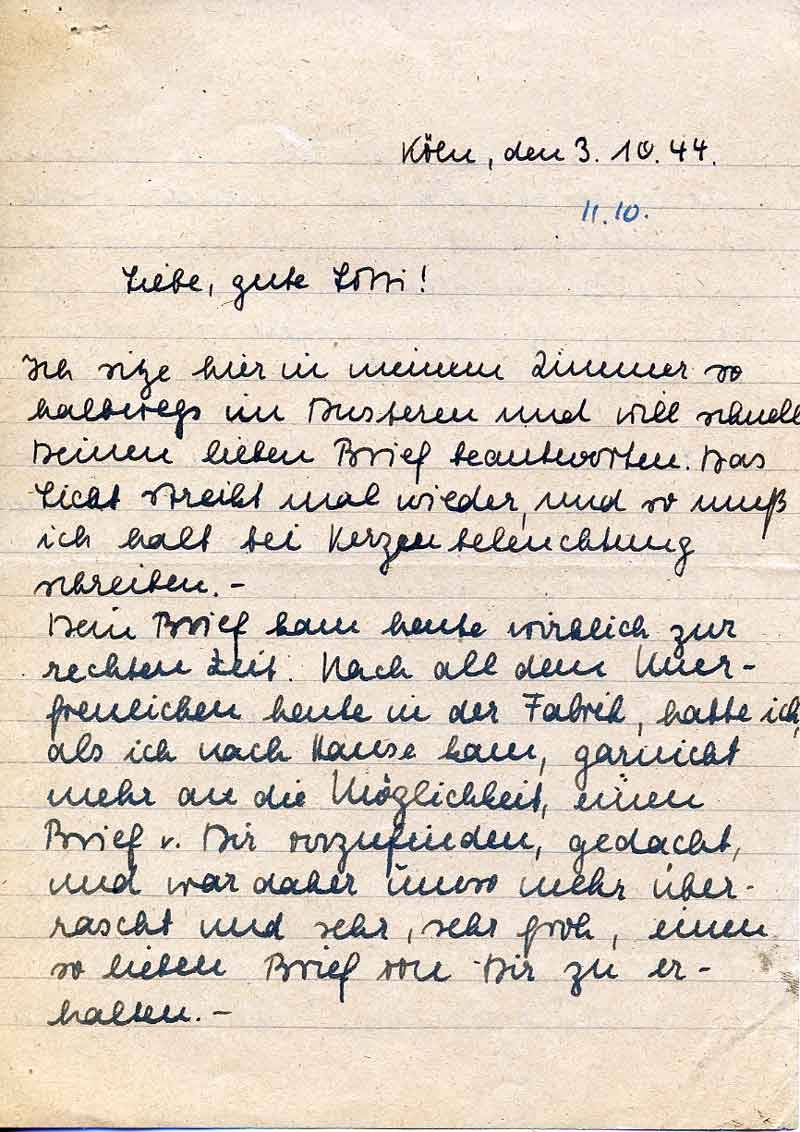 Köln, den 3. 10. 44.
11. 10.
Liebe, gute Lotti!
Ich sitze hier in meinem Zimmer so
halbwegs im Dusteren und will schnell
Deinen lieben Brief beantworten. Das
Licht streikt mal wieder, und so muß
ich halt bei Kerzenbeleuchtung
schreiben. –
Dein Brief kam heute wirklich zur
rechten Zeit. Nach all dem Uner-
freulichen heute in der Fabrik, hatte ich,
als ich nach Hause kam, garnicht
mehr an die Möglichkeit, einen
Brief v. Dir vorzufinden, gedacht,
und war daher umso mehr über-
rascht und sehr, sehr froh, einen
so lieben Brief von Dir zu er-
halten. –